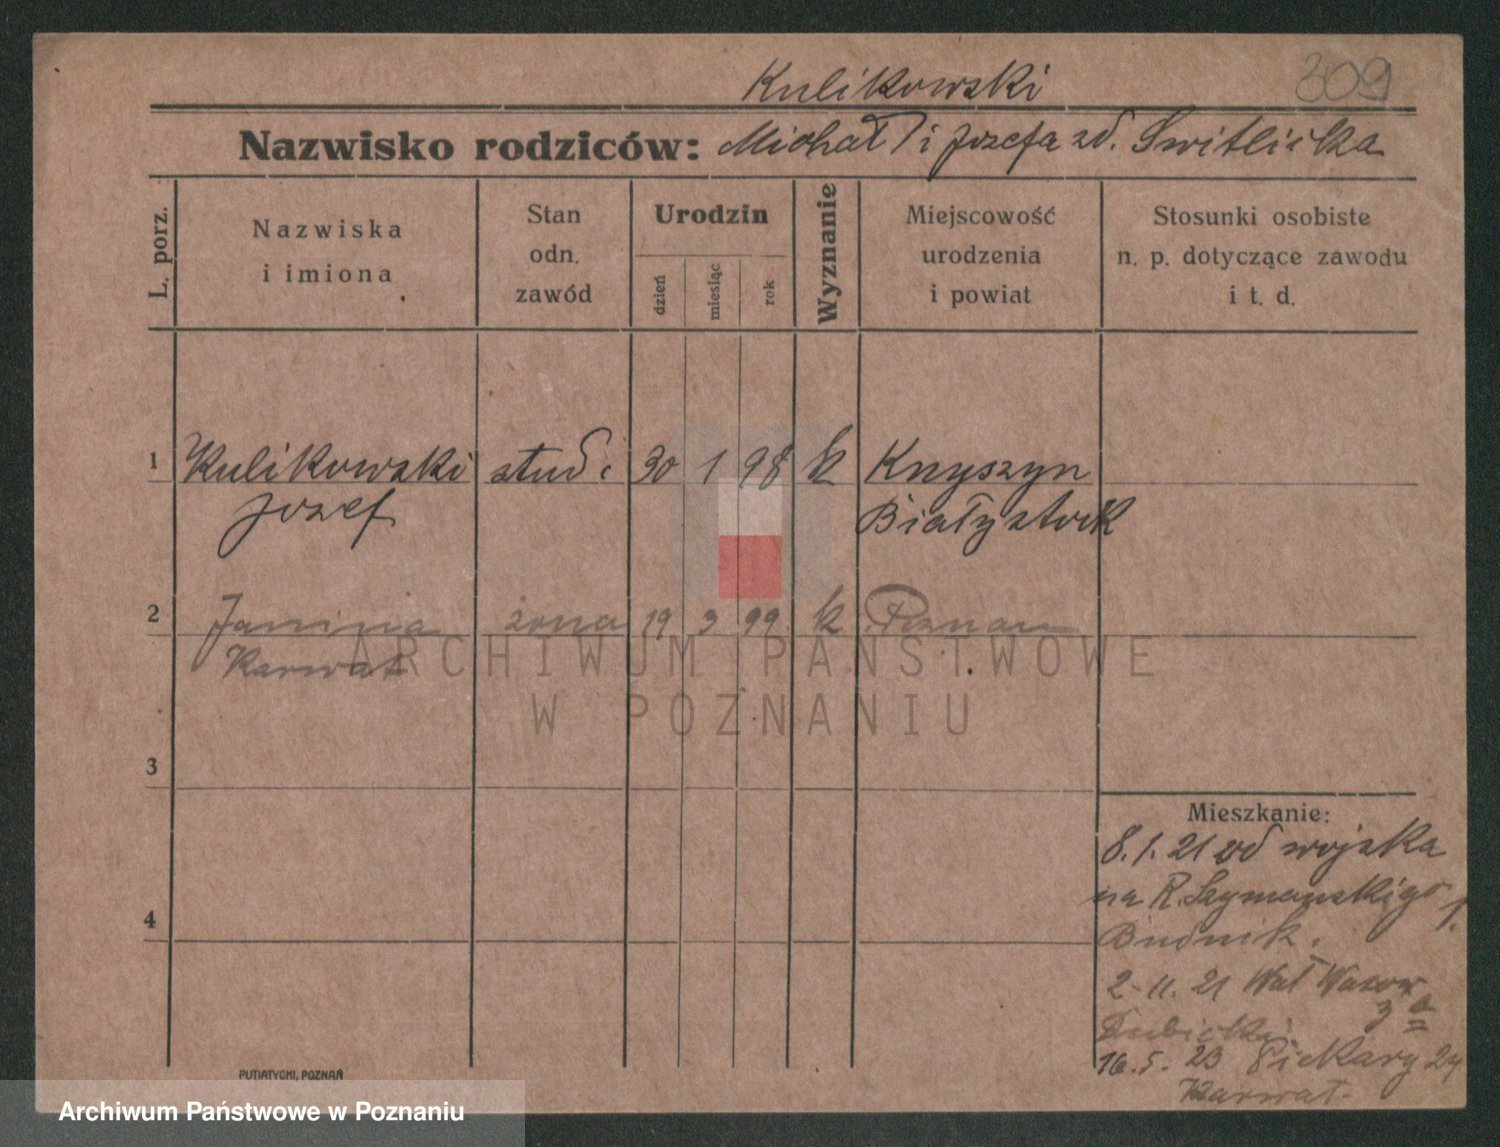 Kulikowski 309
Nazwisko rodziców: Michał i Jozefa zd. Switlicka
L. porz.
Nazwiska
i imiona
Stan
odn.
zawód
Urodzin
dzień miesiąc rok
Wyznanie
Miejscowość
urodzenia
i powiat
Stosunki osobiste
n. p. dotyczące zawodu
i t. d.
1 Kulikowski stud. 30 1 98 k Knyszyn
Jozef Białystock
2 Janina żona 19 3 99 k Poznan
Karwat
ARCHIWUM PAŃSTWOWE
W POZNANIU
3
Mieszkanie:
8.1.21 od wojska
na R. Szymanskigo 1.
4
Budnik.
2-11.21 Wał Wazow
3a
16.5.23 Piekary 24
Karwat
PUTIATYCKI, POZNAŃ
Archiwum Państwowe w Poznaniu